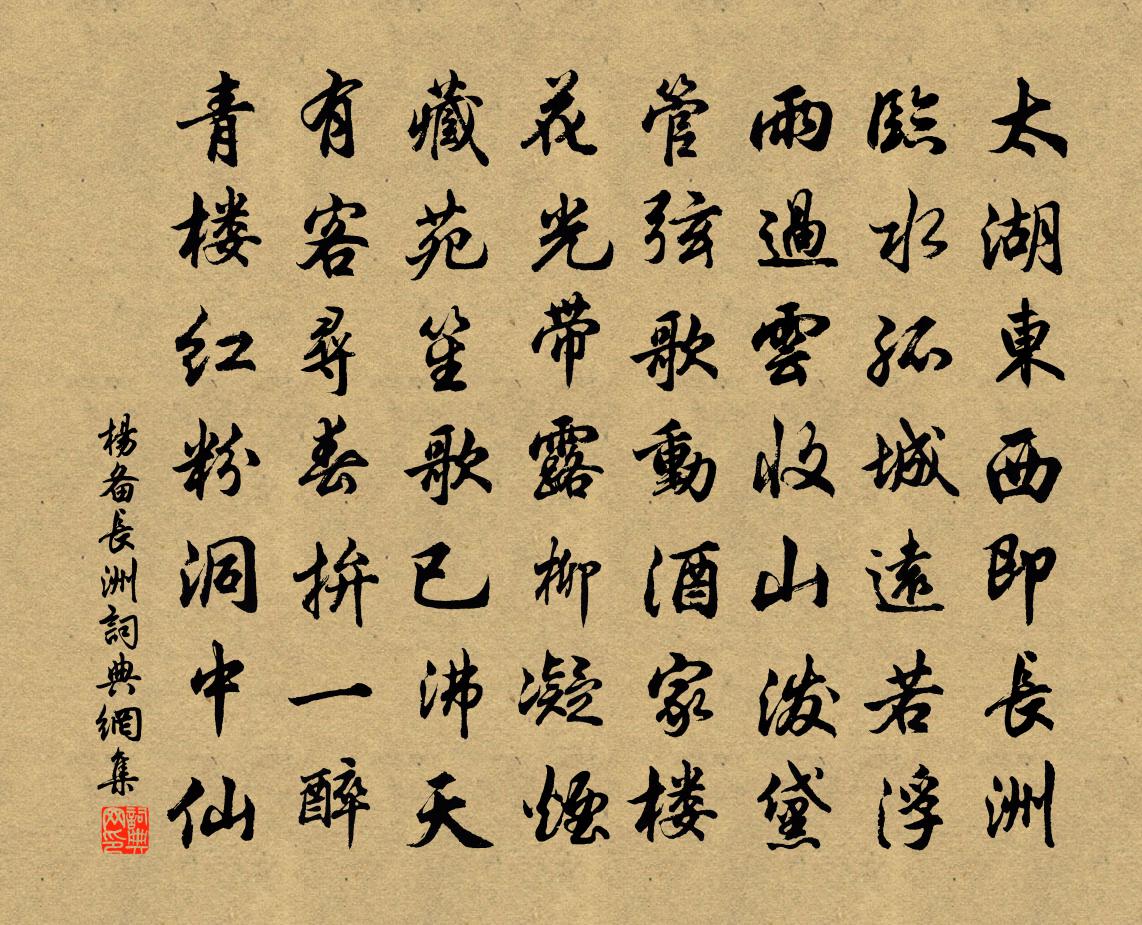 太湖東西即長洲
臨水孤城遠若浮
雨過雲收山潑黛
管弦歌動酒家楼
花光带露柳凝煙
藏苑笙歌已沸天
有客尋春拚一醉
青楼红粉洞中仙
楊备長洲詞典網集
詞典網印